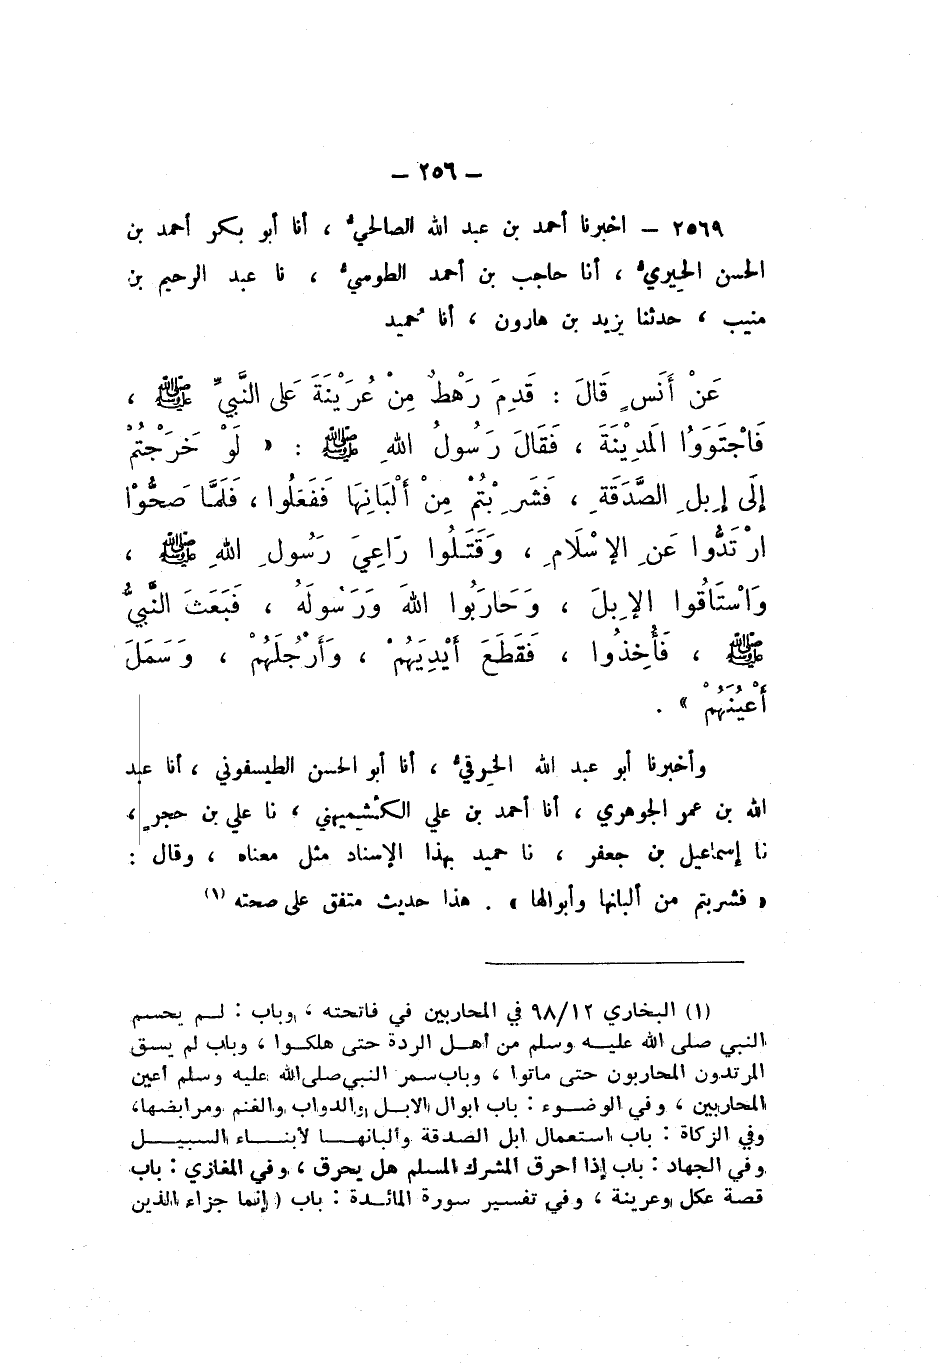 – ٢٥٦ –
٢٥٦٩ – اخبرنا أحمد بن عبد الله الصالحيُّ ، أنا أبو بكر أحمد بن
الحسن الحِيريُّ ، أنا حاجب بن أحمد الطوسيُّ ، نا عبد الرحيم بن
منيب ، حدثنا يزيد بن هارون ، أنا حُميد
عَنْ أَنَسٍ قَالَ : قَدِمَ رَهْطٌ مِنْ عُرَيْنَةَ عَلى النَّبيِّ ﷺ ،
فَاجْتَوَوُا المَدِيْنَةَ ، فَقَالَ رَسُولُ اللهِ ﷺ : « لَوْ خَرَجْتُمْ
إِلَى إِبِلِ الصَّدَقَةِ ، فَشَرِبْتُمْ مِنْ أَلْبَانِهَا فَفَعَلُوا ، فَلَمَّا صَحُّوْا
ارْتَدُّوا عَنِ الإِسْلَامِ ، وَقَتَلُوا رَاعِيَ رَسُولِ اللهِ ﷺ ،
وَاسْتَاقُوا الإِبِلَ ، وَحَارَبُوا اللهَ وَرَسُولَهُ ، فَبَعَثَ النَّبيُّ
ﷺ ، فَأُخِذُوا ، فَقَطَعَ أَيْدِيَهُمْ ، وَأَرْجُلَهُمْ ، وَسَمَلَ
أَعْيُنَهُمْ » .
وأخبرنا أبو عبد الله الخِرقيُّ ، أنا أبو الحسن الطيسفوني ، أنا عبد
الله بن عمر الجوهري ، أنا أحمد بن علي الكُشميهني ، نا علي بن حجرٍ ،
نا إسماعيل بن جعفر ، نا حميد بهذا الإسناد مثل معناه ، وقال :
« فشربتم من ألبانها وأبوالها » . هذا حديث متفق على صحته (١)
(١) البخاري ٩٨/١٢ في المحاربين في فاتحته ، وباب : لم يحسم
النبي صلى الله عليه وسلم من أهل الردة حتى هلكوا ، وباب لم يسق
المرتدون المحاربون حتى ماتوا ، وباب سمر النبي صلى الله عليه وسلم أعين
المحاربين ، وفي الوضوء : باب ابوال الابل والدواب والغنم ومرابضها،
وفي الزكاة : باب استعمال ابل الصدقة وألبانها لأبناء السبيل
وفي الجهاد : باب إذا احرق المشرك المسلم هل يحرق ، وفي المغازي : باب
قصة عكل وعرينة ، وفي تفسير سورة المائدة : باب ( إنما جزاء الذين